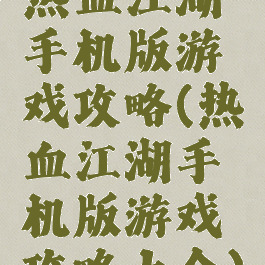 热血江湖
手机版游
戏攻略(热
血江湖手
机版游戏
攻略大全)